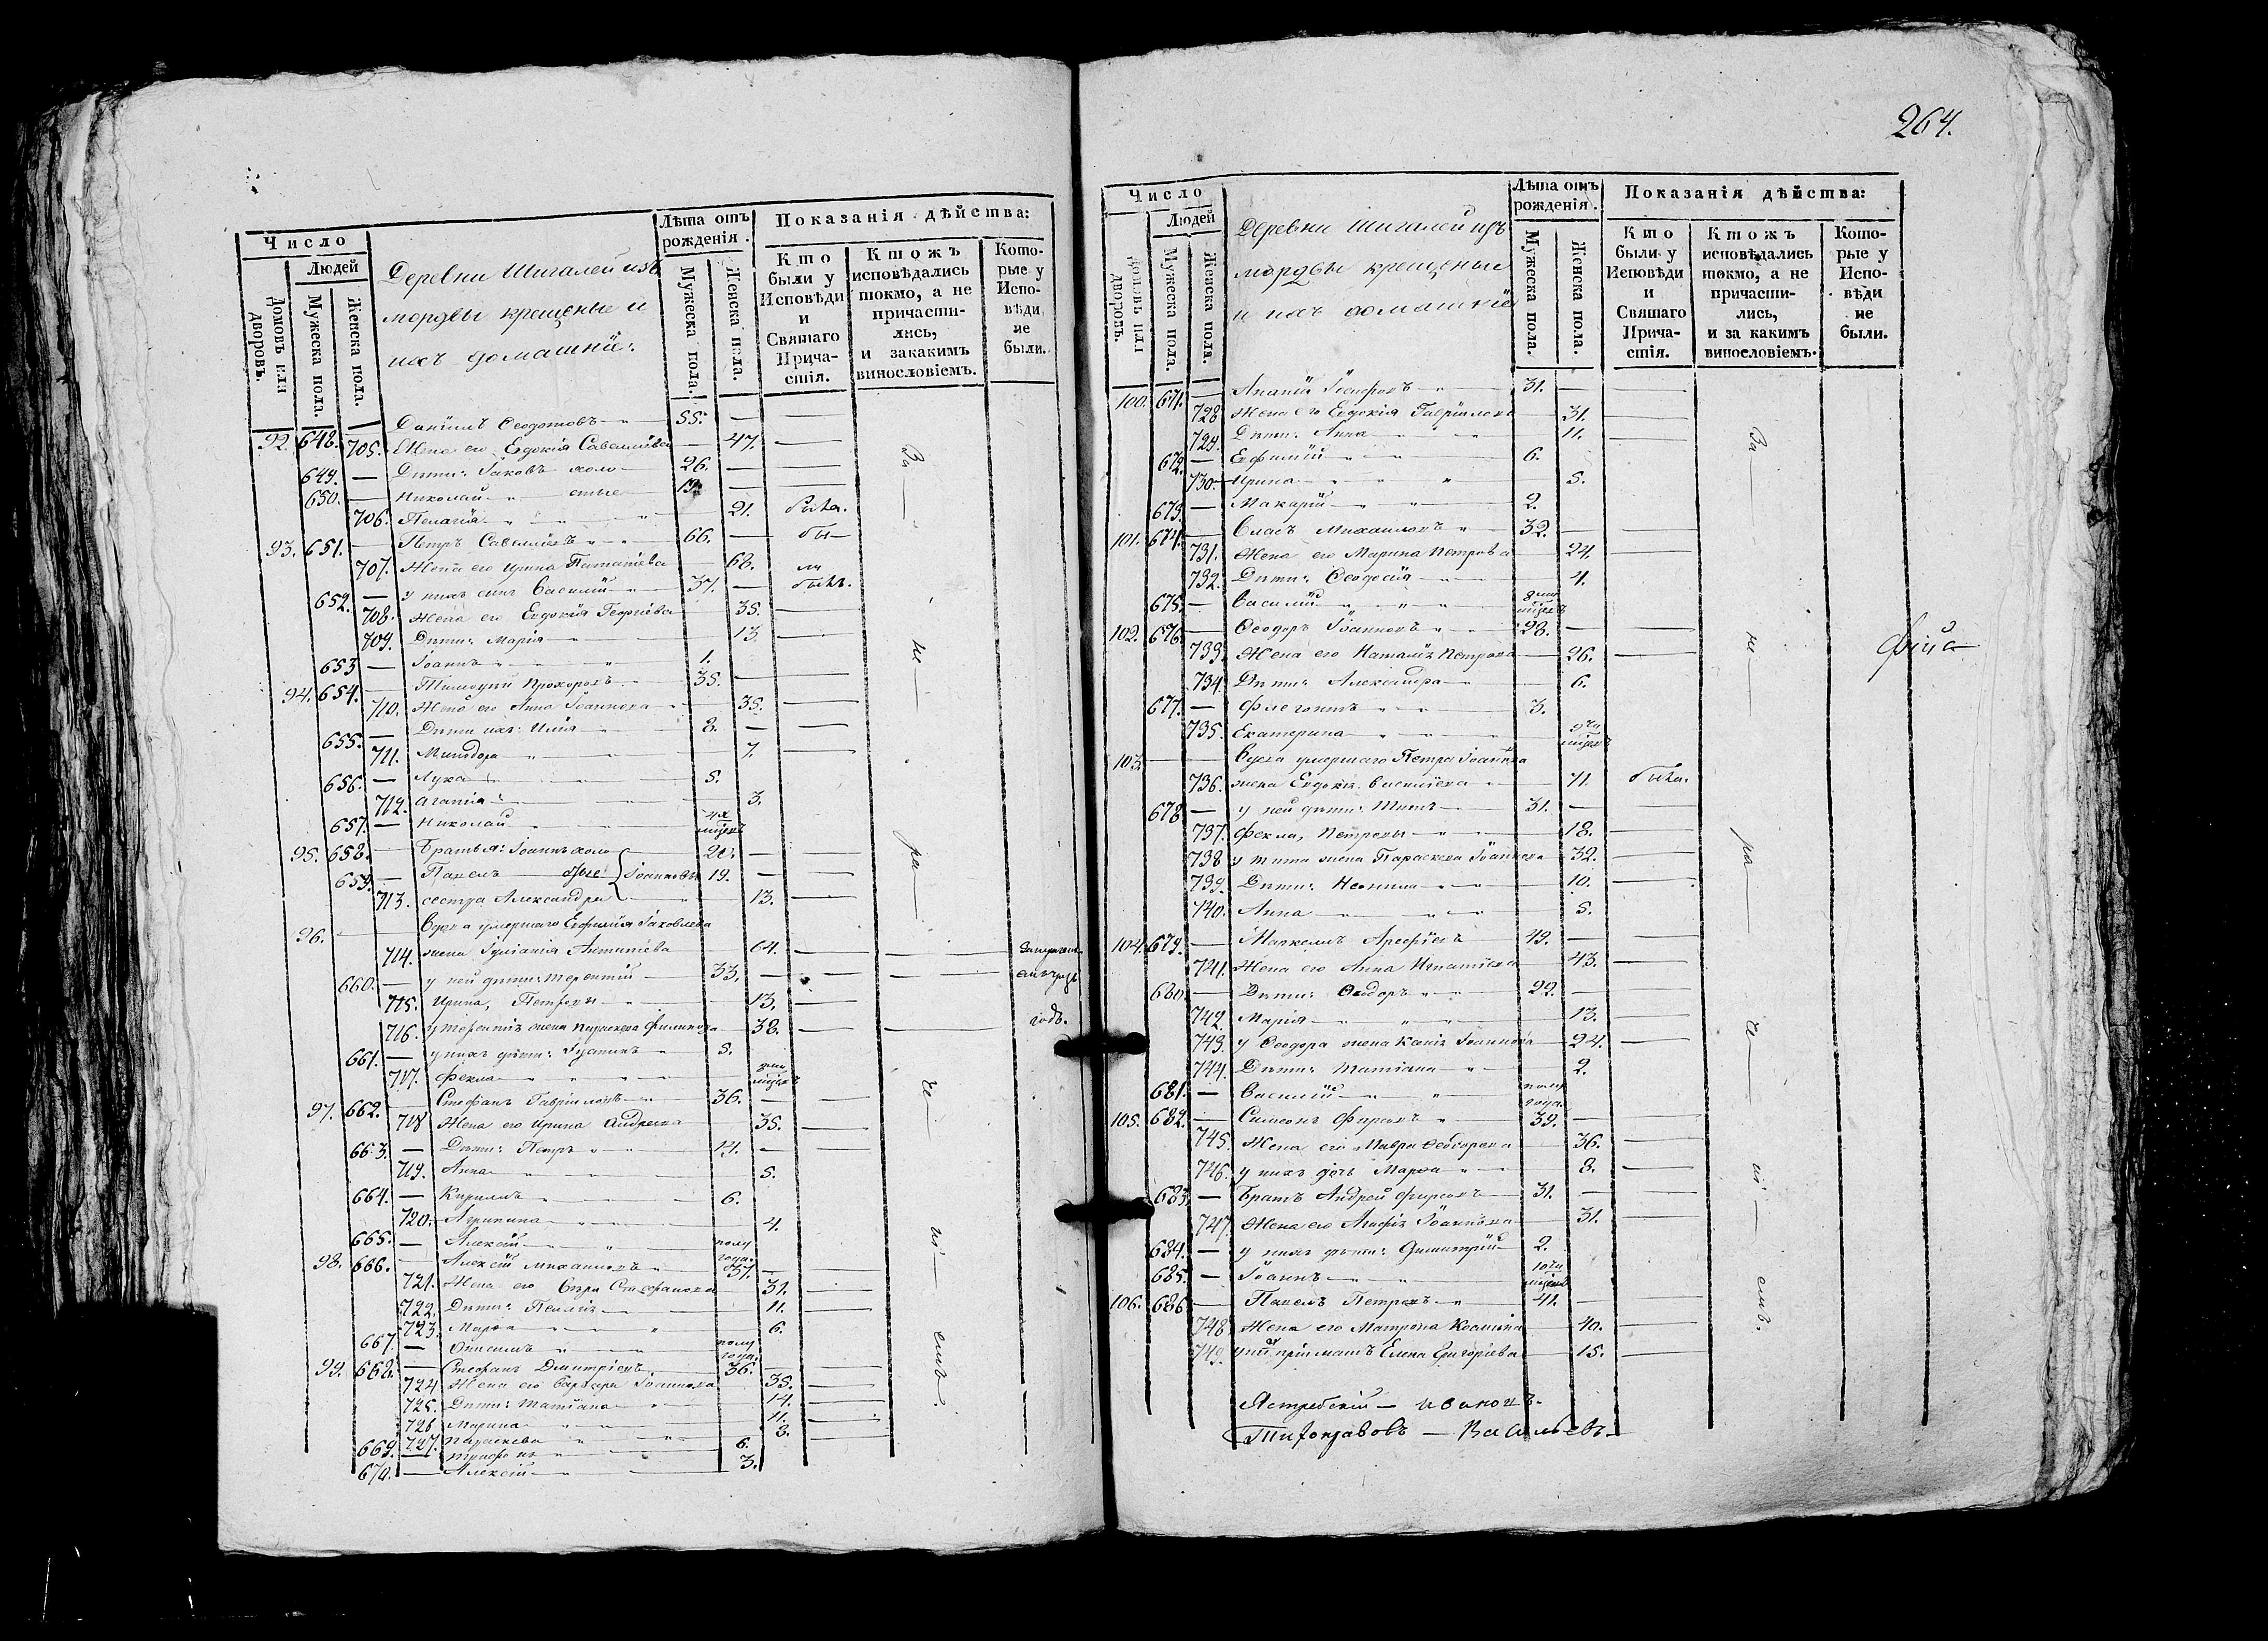 Число
Людей
Домовъ или дворовъ.
Мужеска пола.
Женска пола.
Деревни Шигалей изъ
мордвы крещеные и
ихъ домашніе:
Лѣта отъ рожденія.
Мужеска пола.
Женска пола.
Показанія дѣйства:
Кто были у Исповѣди и Святаго Причастія.
Ктожъ исповѣдались токмо, а не причастились, и закакимъ винословіемъ.
Которые у Исповѣди не были.
92. 648. — Даніилъ Ѳеодотовъ 55. —
705. Жена его Евдокія Савеліева — 47.
649. — Дѣти: Іаковъ холо 26. —
650. — Николай стые —
706. Пелагія 21. была.
93. 651. — Петръ Савеліевъ 66. — бы
707. Жена его Ирина — 68. ли
652. — у нихъ сынъ Василій 37. — былъ.
708. Жена его Евдокія Георгіева 35.
709. Дѣти: Марія 13
653 — Іоаннъ 1.
94. 654. — Тимоѳей Прохоровъ 35. —
710. Жена его Анна Іоаннова 35.
655. — Дѣти ихъ: Илія 8. —
711. Минодора 7.
656. — Лука 5.
712. Агапія 3.
657. — Николай мѣсяцъ
95. 658. — Братья: Іоаннъ холо 20. —
659. — Павелъ стые Іоанновы 19. —
713. сестра Александра 13.
96. — Вдова умершаго Евфимія Іаковлева
714. жена Іуліанія Антипіева 64.
660. — у ней дѣти: Терентій 33. —
715. Ирина, Петровы 13.
716. у Терентія жена Параскева Филипова 38. годъ.
661. — у нихъ дѣти: Іустинъ 5.
717. Фекла мѣсяцъ
97. 662. — Стефанъ Гавріиловъ 36. —
718 Жена его Ирина Андреева 35.
663. — Дѣти: Петръ 12. —
719. Анна 5.
664. — Кириллъ 6.
720. Агрипина 4.
665. — Алексій полу года.
98. 666. — Алексій Михаиловъ 37. —
721. Жена его Вѣра Стефанова 31.
722. Дѣти: Пелагія 11.
723. Марѳа 6.
667. — Онисимъ полу года.
99. 668. — Стефанъ Дмитріевъ 36. —
724 Жена его Варвара Іоаннова 35.
725. Дѣти: Татіана 14.
726 Марина 11.
727. Параскева 8.
669. — Трифонъ 6.
670. — Алексій 3.
За не ра че ні емъ.
264.
Число
Людей
Домовъ или дворовъ.
Мужеска пола.
Женска пола.
Деревни Шигалей изъ
мордвы крещеные
и ихъ домашніе
Лѣта отъ рожденія.
Мужеска пола.
Женска пола.
Показанія дѣйства:
Кто были у Исповѣди и Святаго Причастія.
Ктожъ исповѣдались токмо, а не причастились, и за какимъ винословіемъ.
Которые у Исповѣди не были.
100. 671. — Ананій Іосифовъ 31. —
728 Жена его Евдокія Гавріилова 31.
729. Дѣти: Анна 11.
672. — Евфимій 6.
730. Ирина 5.
673. — Макарій 2.
101. 674. — Власъ Михаиловъ 32. —
731. Жена его Марина Петрова 24.
732. Дѣти: Ѳеодосія 4.
675. — Василій мѣсяцъ
102. 676. — Ѳеодоръ Іоанновъ 28. —
733. Жена его Наталія Петрова 26.
734. Дѣти: Александра 6.
677. — Флегонтъ 3.
735. Екатерина мѣсяцъ
103. — Вдова умершаго Петра Іоаннова
736. жена Евдокія Василіева 71. была.
678 — у ней дѣти: Титъ 31. —
737. Фекла, Петровы 18.
738 у Тита жена Параскева Іоаннова 32.
739. Дѣти: Неонила 10.
740. Анна 5.
104. 679. — Маркелъ Арефіевъ 49. —
741. Жена его Анна Игнатіева 43.
680. — Дѣти: Ѳеодоръ 22. —
742. Марія 13.
743. у Ѳеодора жена Ксенія Іоаннова 24.
744. Дѣти: Татіана 2.
681. — Василій полу года.
105. 682. — Симеонъ Фирсовъ 39. —
745. Жена его Мавра Ѳеодорова 36.
746. у нихъ дочь Марѳа 8.
683. — Братъ Андрей Фирсовъ 31. —
747 Жена его Агафія Іоаннова 31.
684. — у нихъ дѣти: Димитрій 2.
685. — Іоаннъ мѣсяцъ
106. 686 — Павелъ Петровъ 41. —
748 Жена его Матрона Космина 40.
749. пріимашъ Елена Григоріева 15.
За не ра че ні емъ.
Ястребскій — Ивановъ.